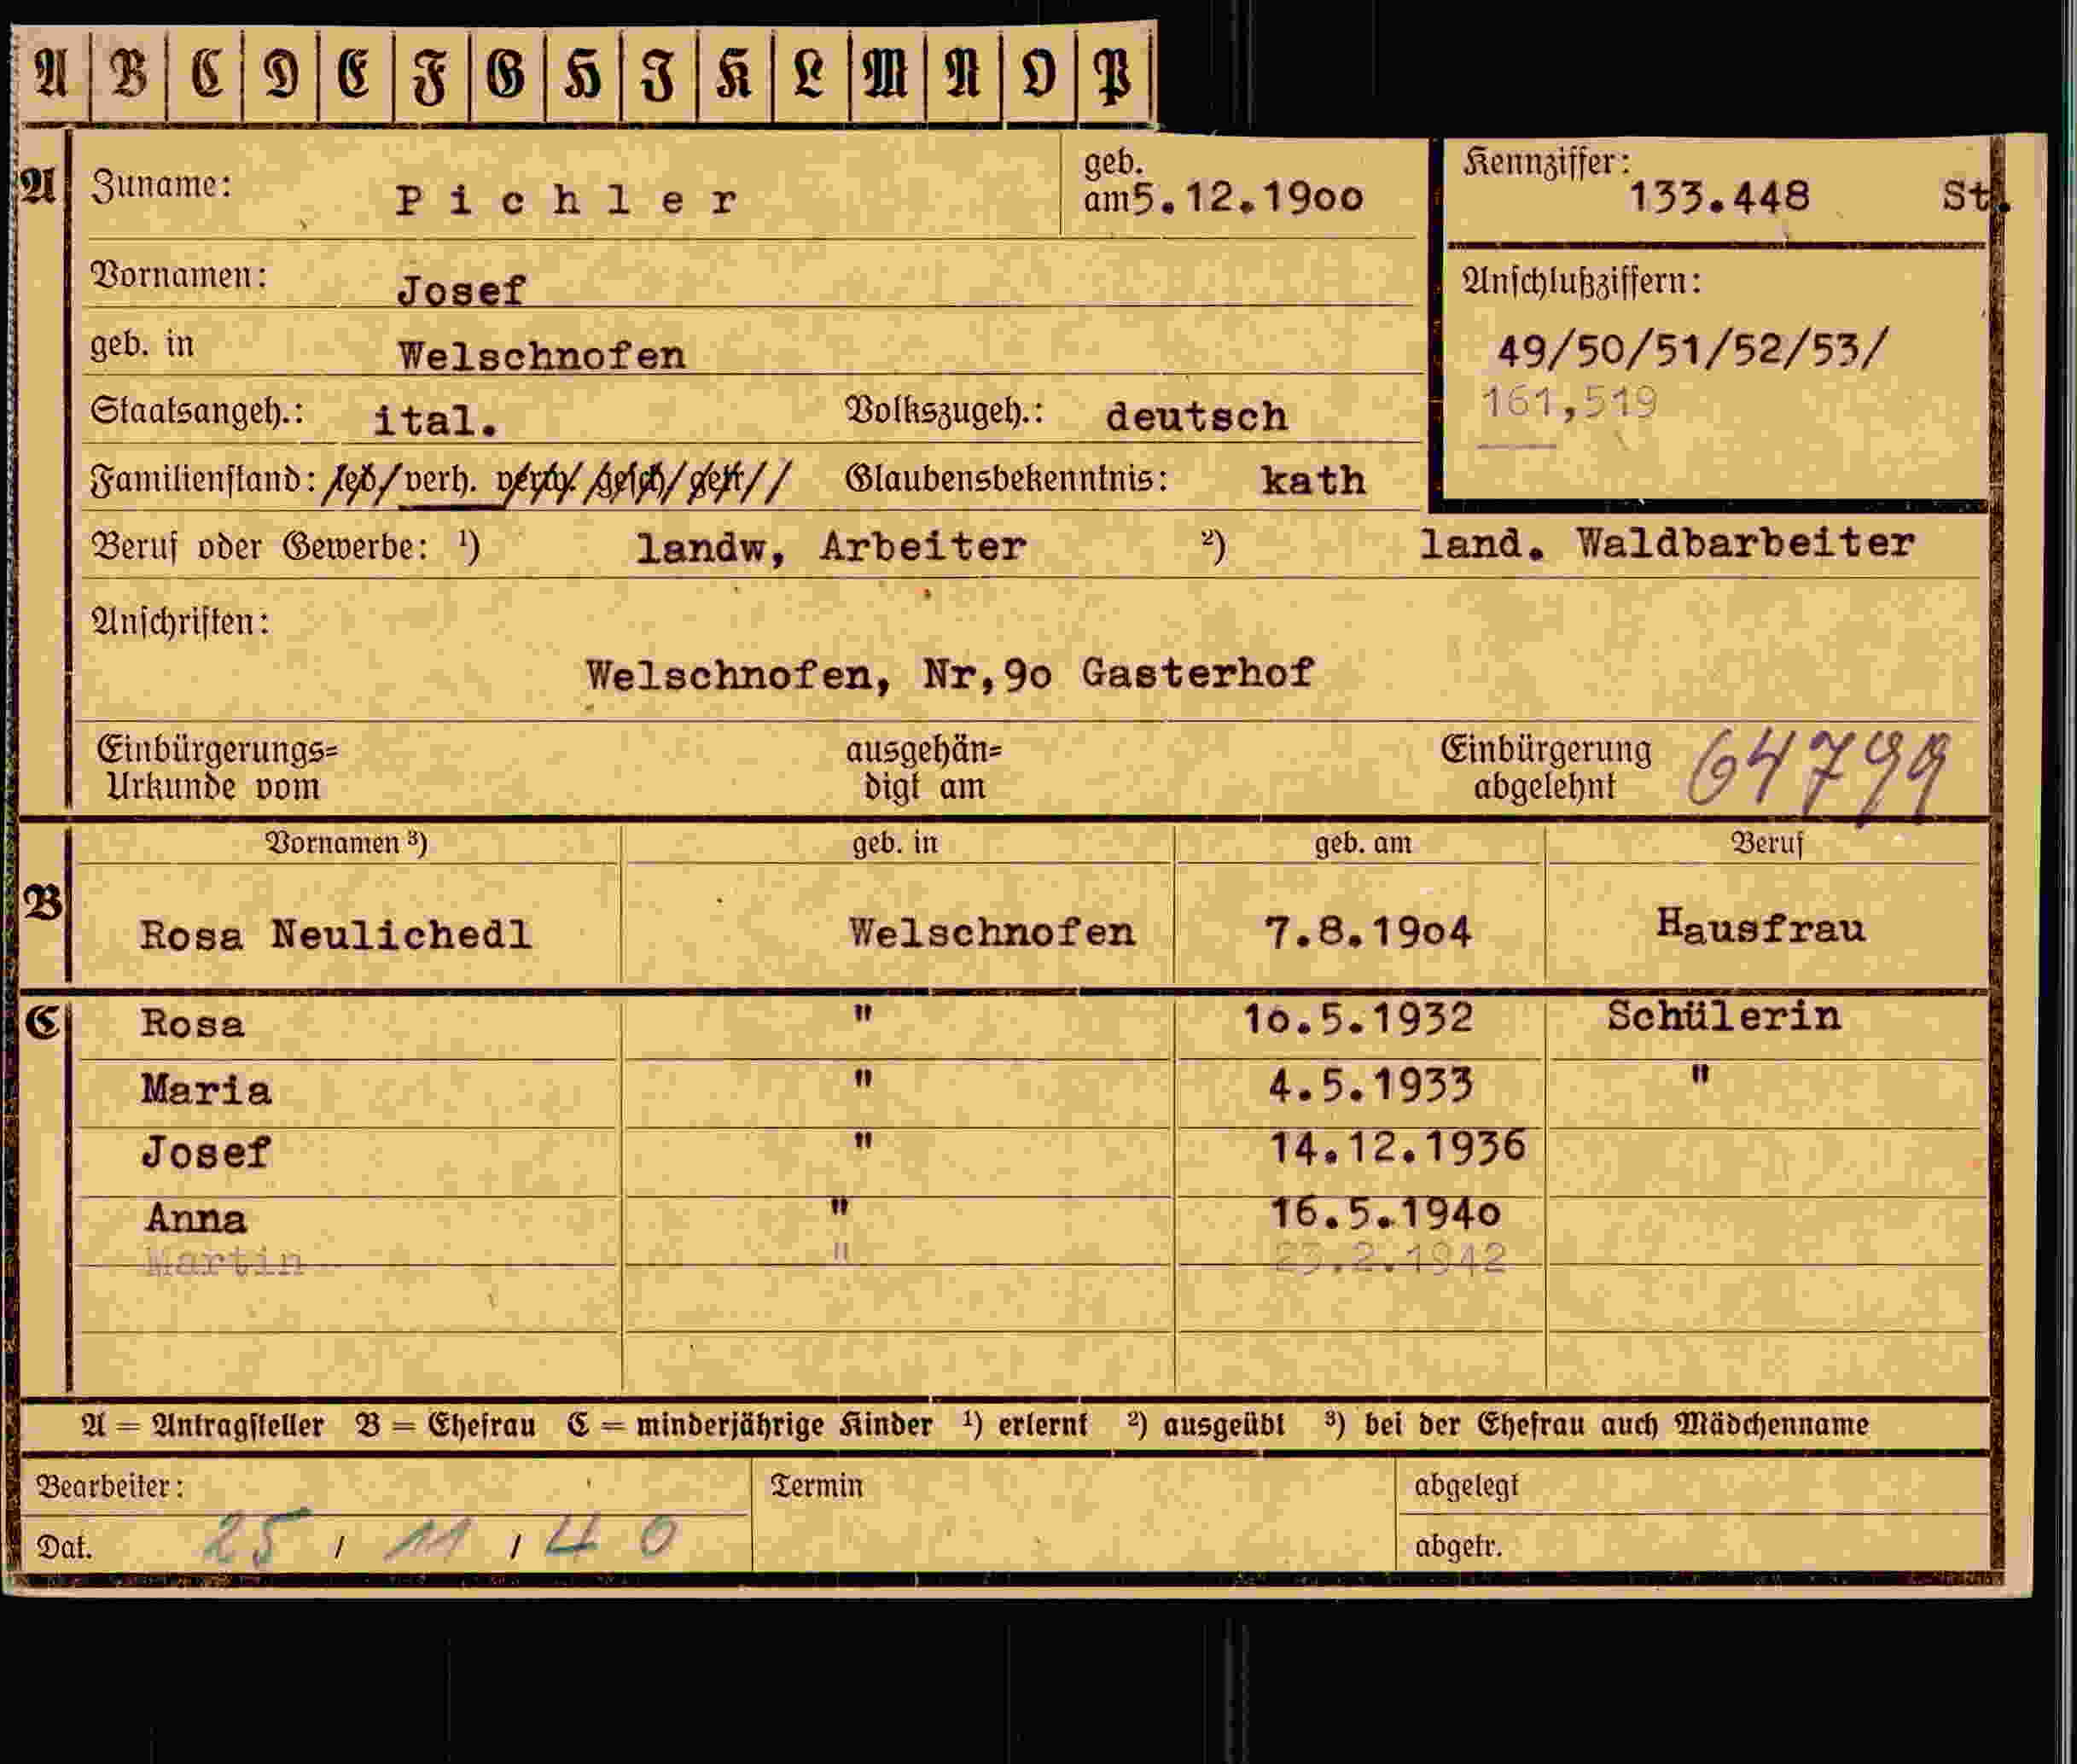 A B C D E F G H J K L M N O P
A Zuname: Pichler geb. am 5.12.1900 Kennziffer: 133.448 St.
Vornamen: Josef Anschlußziffern:
geb. in Welschnofen 49/50/51/52/53/
Staatsangeh.: ital. Volkszugeh.: deutsch 161,519
Familienstand: led/ verh. verw. /gesch/ getr// Glaubensbekenntnis: kath
Beruf oder Gewerbe: ¹) landw, Arbeiter ²) land. Waldbarbeiter
Anschriften:
Welschnofen, Nr,90 Gasterhof
Einbürgerungs= ausgehän= Einbürgerung 64799
Urkunde vom digt am abgelehnt
Vornamen ³) geb. in geb. am Beruf
B Rosa Neulichedl Welschnofen 7.8.1904 Hausfrau
C Rosa " 10.5.1932 Schülerin
Maria " 4.5.1933 "
Josef " 14.12.1936
Anna " 16.5.1940
Martin " 23.2.1942
A = Antragsteller B = Ehefrau C = minderjährige Kinder ¹) erlernt ²) ausgeübt ³) bei der Ehefrau auch Mädchenname
Bearbeiter: Termin abgelegt
Dat. 25 / 11 / 40 abgetr.